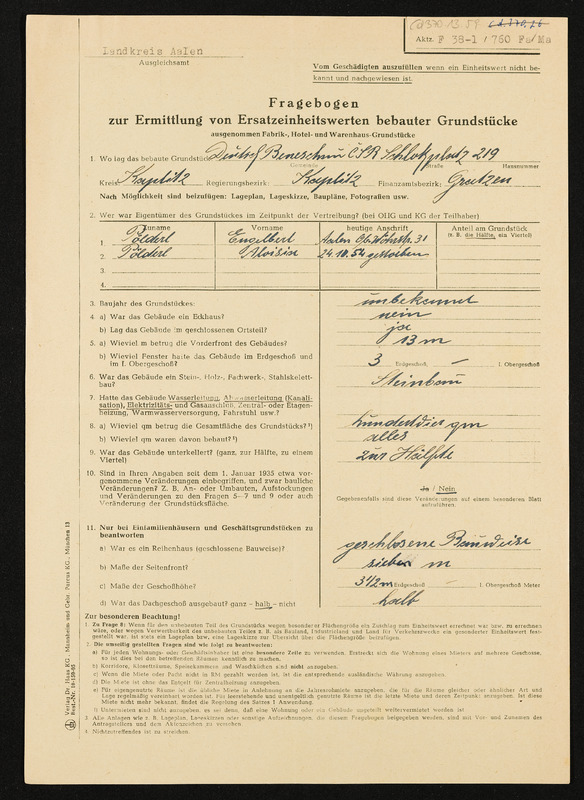 Landkreis Aalen
Ausgleichsamt
Aktz. F 38-1 / 760 Fa/Ma
Vom Geschädigten auszufüllen wenn ein Einheitswert nicht be-
kannt und nachgewiesen ist.
Fragebogen
zur Ermittlung von Ersatzeinheitswerten bebauter Grundstücke
ausgenommen Fabrik-, Hotel- und Warenhaus-Grundstücke
1. Wo lag das bebaute Grundstück Deutsch Beneschau ČSR Schloßplatz 219
Gemeinde Straße Hausnummer
Kreis Kaplitz Regierungsbezirk: Kaplitz Finanzamtsbezirk: Gratzen
Nach Möglichkeit sind beizufügen: Lageplan, Lageskizze, Baupläne, Fotografien usw.
2. Wer war Eigentümer des Grundstückes im Zeitpunkt der Vertreibung? (bei OHG und KG der Teilhaber)
Zuname Vorname heutige Anschrift Anteil am Grundstück
(z. B. die Hälfte, ein Viertel)
1. Pölderl Engelbert Aalen 31
2. Pölderl Aloisia 24.10.54 gestorben
3.
4.
3. Baujahr des Grundstückes: unbekannt
4. a) War das Gebäude ein Eckhaus? nein
b) Lag das Gebäude im geschlossenen Ortsteil? ja
5. a) Wieviel m betrug die Vorderfront des Gebäudes? 13 m
b) Wieviel Fenster hatte das Gebäude im Erdgeschoß und
im I. Obergeschoß? 3 Erdgeschoß — I. Obergeschoß
6. War das Gebäude ein Stein-, Holz-, Fachwerk-, Stahlskelett-
bau? Steinbau
7. Hatte das Gebäude Wasserleitung, Abwasserleitung (Kanali-
sation), Elektrizitäts- und Gasanschluß, Zentral- oder Etagen-
heizung, Warmwasserversorgung, Fahrstuhl usw.?
8. a) Wieviel qm betrug die Gesamtfläche des Grundstücks? ¹) qm
b) Wieviel qm waren davon bebaut? ¹) alles
9. War das Gebäude unterkellert? (ganz, zur Hälfte, zu einem
Viertel) zur Hälfte
10. Sind in Ihren Angaben seit dem 1. Januar 1935 etwa vor-
genommene Veränderungen einbegriffen, und zwar bauliche
Veränderungen? Z. B. An- oder Umbauten, Aufstockungen
und Veränderungen zu den Fragen 5—7 und 9 oder auch
Veränderung der Grundstücksfläche.
Ja / Nein
Gegebenenfalls sind diese Veränderungen auf einem besonderen Blatt
aufzuführen.
11. Nur bei Einfamilienhäusern und Geschäftsgrundstücken zu
beantworten
a) War es ein Reihenhaus (geschlossene Bauweise)? geschlossene Bauweise
b) Maße der Seitenfront? sieben m
c) Maße der Geschoßhöhe? 3 1/2 m Erdgeschoß — I. Obergeschoß Meter
d) War das Dachgeschoß ausgebaut? ganz – halb – nicht halb
Zur besonderen Beachtung!
1. Zu Frage 8: Wenn für den unbebauten Teil des Grundstücks wegen besonderer Flächengröße ein Zuschlag zum Einheitswert errechnet war bzw. zu errechnen
wäre, oder wegen Verwertbarkeit des unbebauten Teiles z. B. als Bauland, Industrieland und Land für Verkehrszwecke ein gesonderter Einheitswert fest-
gestellt war, ist stets ein Lageplan bzw. eine Lageskizze zur Übersicht über die Flächengröße beizufügen.
2. Die unwillig gestellten Fragen sind wie folgt zu beantworten:
a) Für jeden Wohnungs- oder Geschäftsinhaber ist eine besondere Zeile zu verwenden. Erstreckt sich die Wohnung eines Mieters auf mehrere Geschosse,
so ist dies bei den betreffenden Räumen kenntlich zu machen.
b) Korridore, Klosetträume, Speisekammern und Waschküchen sind nicht anzugeben.
c) Wenn die Miete oder Pacht nicht in RM gezahlt worden ist, ist die entsprechende ausländische Währung anzugeben.
d) Die Miete ist ohne das Entgelt für Zentralheizung anzugeben.
e) Für eigengenutzte Räume ist die übliche Miete in Anlehnung an die Jahresrohmiete anzugeben, die für die Räume gleicher oder ähnlicher Art und
Lage regelmäßig vereinbart worden ist. Für leerstehende und unentgeltlich genutzte Räume ist die Miete und deren Zeitpunkt anzugeben. Ist diese
Miete nicht mehr bekannt, findet die Regelung des Satzes 1 Anwendung.
f) Untermieten sind nicht anzugeben, es sei denn, daß eine Wohnung oder ein Gebäude ungeteilt weitervermietet worden ist.
3. Alle Anlagen wie z. B. Lageplan, Lageskizzen oder sonstige Aufzeichnungen, die diesem Fragebogen beigegeben werden, sind mit Vor- und Zunamen des
Antragstellers und dem Aktenzeichen zu versehen.
4. Nichtzutreffendes ist zu streichen.
Verlag Dr. Haas KG. Mannheim und Gebr. Nerrus KG., München 13